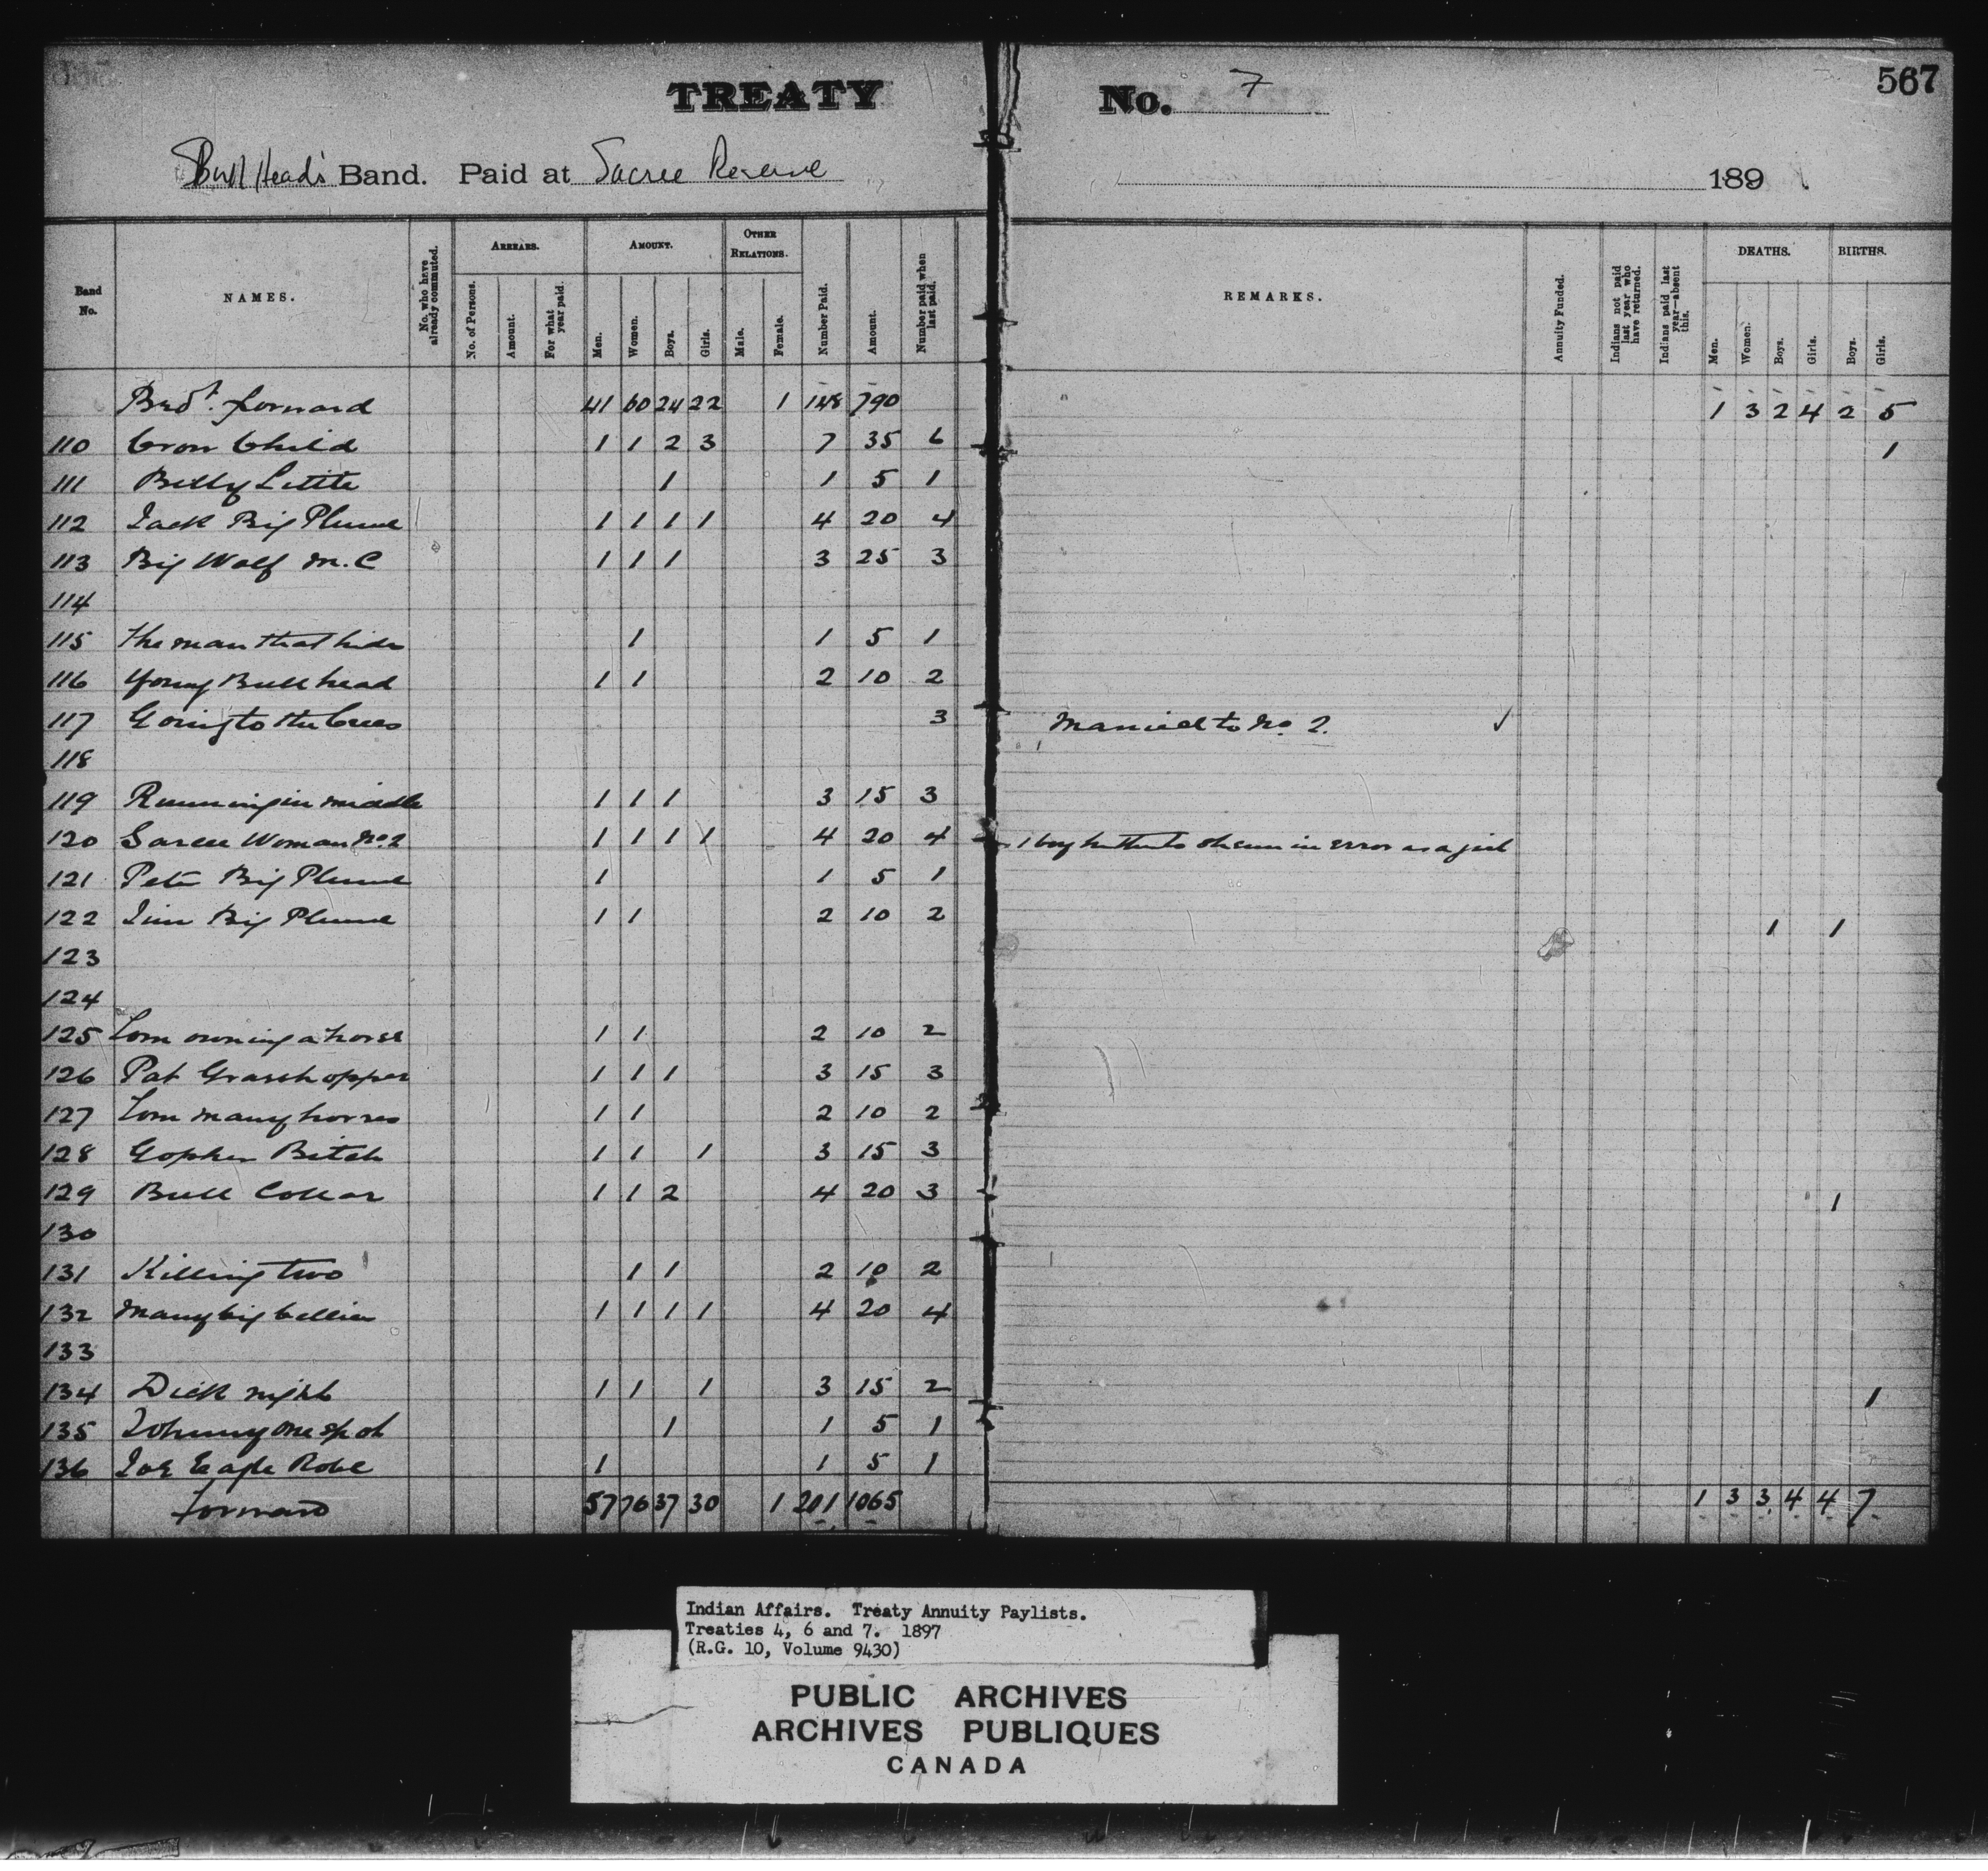 TREATY No. 7 567
Bull Head's Band. Paid at Sarcee Reserve 189
Band No. NAMES. No. who have already commuted. ARREARS. No. of Persons. Amount. For what year paid. AMOUNT. Men. Women. Boys. Girls. OTHER RELATIONS. Male. Female. Number Paid. Amount. Number paid when last paid. REMARKS. Annuity Funded. Indians not paid last year who have returned. Indians paid last year—absent this. DEATHS. Men. Women. Boys. Girls. BIRTHS. Boys. Girls.
Brot. forward 41 60 24 22 1 148 790 1 3 2 4 2 5
110 Crow Child 1 1 2 3 7 35 6 1
111 Billy Little 1 1 5 1
112 Jack Big Plume 1 1 1 1 4 20 4
113 Big Wolf M.C 1 1 1 3 25 3
114
115 The man that hides 1 1 5 1
116 Young Bull head 1 1 2 10 2
117 Going to the Crees 3 Married to No 2. ✓
118
119 Running in middle 1 1 1 3 15 3
120 Sarcee Woman No. 2 1 1 1 1 4 20 4 1 boy hitherto shewn in error as a girl
121 Peter Big Plume 1 1 5 1
122 Jim Big Plume 1 1 2 10 2 1 1
123
124
125 Tom owning a horse 1 1 2 10 2
126 Pat Grasshopper 1 1 1 3 15 3
127 Tom many horses 1 1 2 10 2
128 Gopher Bitch 1 1 1 3 15 3
129 Bull Collar 1 1 2 4 20 3 1
130
131 Killing two 1 1 2 10 2
132 Many big bellies 1 1 1 1 4 20 4
133
134 Dick night 1 1 1 3 15 2 1
135 Johnny one spot 1 1 5 1
136 Joe Eagle Robe 1 1 5 1
Forward 57 76 37 30 1 201 1065 1 3 3 4 4 7
Indian Affairs. Treaty Annuity Paylists.
Treaties 4, 6 and 7. 1897
(R.G. 10, Volume 9430)
PUBLIC ARCHIVES
ARCHIVES PUBLIQUES
CANADA